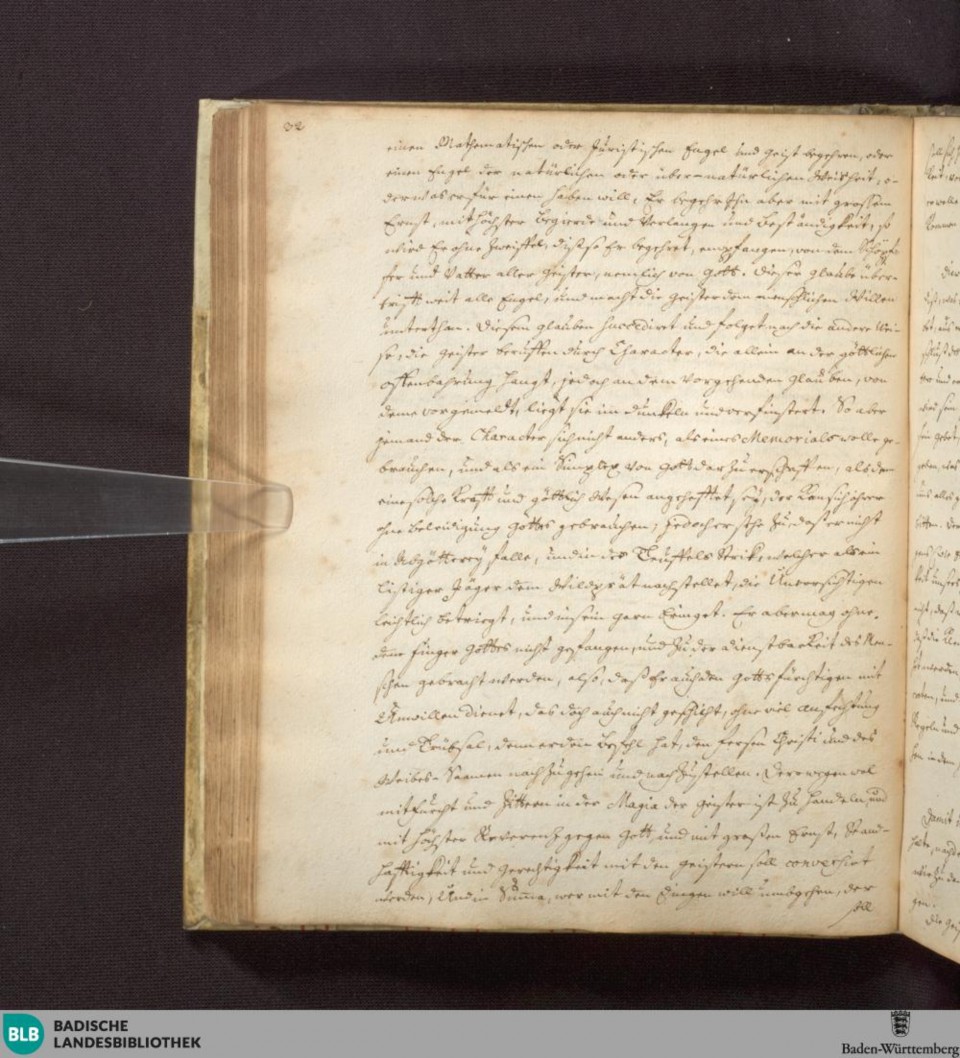 32
einen Mathematischen oder Juristischen Engel und Geist begehren, oder
einen Engel der natürlichen oder übernatürlichen Weisheit, o-
der was er für einen haben will, Er begehr Ihn aber mit grossem
Ernst, mit höchster begierde und Verlangen und beständigkeit, so
wird Er ohne Zweiffel, diß so Er begehret, empfangen, von dem Schöpf-
fer und Vatter aller Geister, nemlich von Gott. Dieser glaube über-
trifft weit alle Engel, und macht die Geister dem menschlichen Willen
unterthan. Diesem glauben succedirt und folget nach die andere Wei-
se, die Geister beruffen durch Character, die allein an der göttlichen
offenbahrung hangt, jedoch an dem Vorgehenden glauben, von
deme vorgemeldt, liegt sie im dunkeln und verfinstert. So aber
jemand der Character sich nicht anders, als eines Memorials wolle ge-
brauchen, und als ein Simplex von Gott darzu erschaffen, als dem
eine solche Krafft und göttlich Wesen angehefftet sey, der kan sich ihrer
ohne beleidigung Gottes gebrauchen, Jedoch er sehe zu, daß er nicht
in Abgötterey falle, und in des Teuffels Strik, welcher als ein
listiger Jäger dem Wildprät nachstellet, die Unvorsichtigen
leichtlich betriegt, und in sein garn bringet. Er aber mag ohne
dem finger Gottes nicht gefangen, und zu der dienstbarkeit des Men-
schen gebracht werden, also, daß Er auch den Gottsfürchtigen mit
Unwillen dienet, das doch auch nicht geschicht, ohne viel anfechtung
und Trübsal, denn er den befehl hat, den fersen Christi und des
Weibes-Saamen nachzugehen und nachzustellen. Derowegen viel
mit furcht und Zittern in der Magia der Geister ist zu handeln, und
mit höchster Reverentz gegen Gott, und mit grossen Ernst, Stand-
hafftigkeit und gerechtigkeit mit den Geistern soll conversirt
werden, Und in Summa, wer mit den Dingen will umbgehen, der
soll
BLB
BADISCHE
LANDESBIBLIOTHEK
Baden-Württemberg